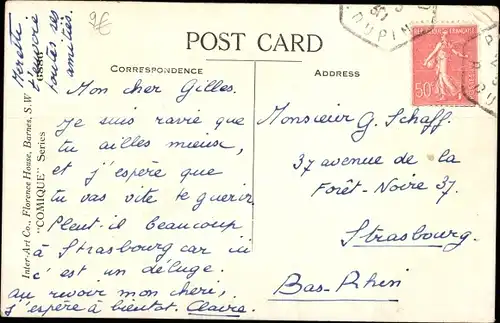 Nerette
t'envoie
toutes ses
amitiés.
9€
POST CARD
CORRESPONDENCE
ADDRESS
Mon cher Gilles.
Je suis ravie que
tu ailles mieux,
et j'espère que
tu vas vite te guérir
Pleut-il beaucoup
à Strasbourg car ici
c'est un déluge.
au revoir mon cheri,
j'espère à bientot. Claire.
Monsieur G. Schaff.
37 avenue de la
Forêt-Noire 37.
Strasbourg.
Bas-Rhin
Inter-Art Co., Florence House, Barnes, S.W.
"COMIQUE" Series
50c
DUPIN